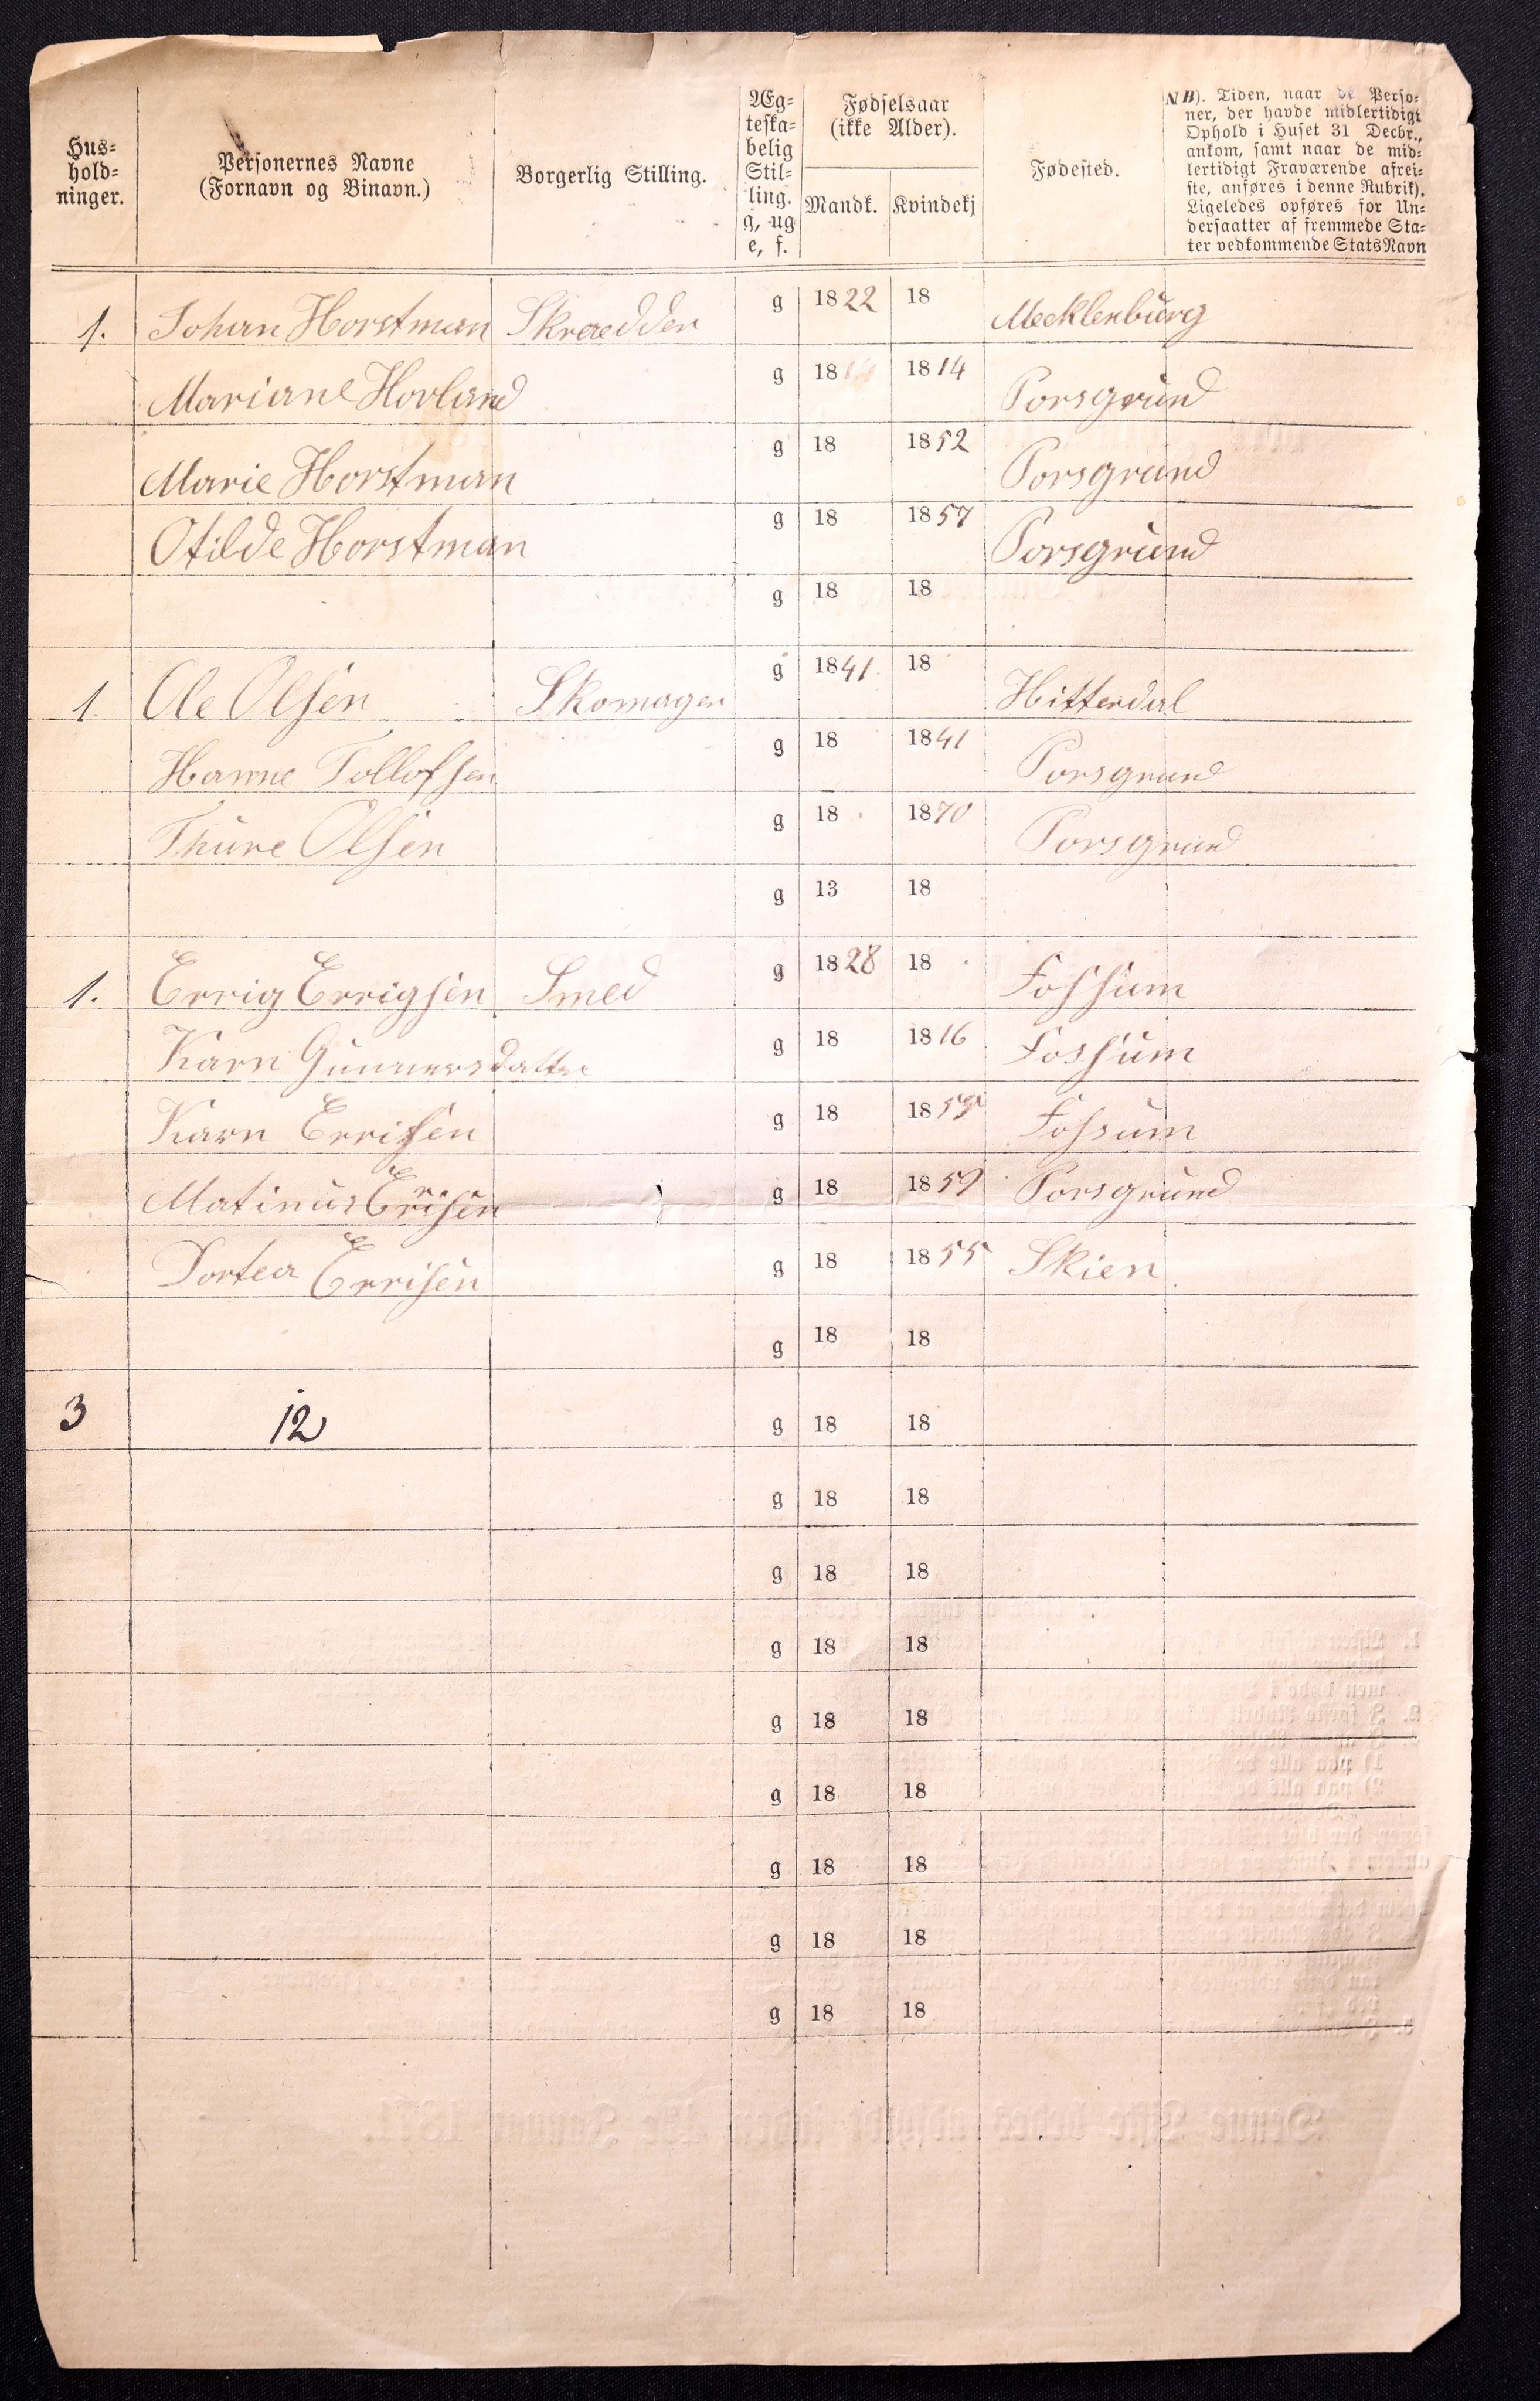 Hus-
hold-
ninger.
Personernes Navne
(Fornavn og Binavn.)
Borgerlig Stilling.
Æg-
teska-
belig
Stil-
ling.
g, ug
e, f.
Fødselsaar
(ikke Alder).
Mandk.
Kvindekj
Fødested.
NB). Tiden, naar de Perso-
ner, der havde midlertidigt
Ophold i Huset 31 Decbr.,
ankom, samt naar de mid-
lertidigt Fraværende afrei-
ste, anføres i denne Rubrik).
Ligeledes opføres for Un-
dersaatter af fremmede Sta-
ter vedkommende Stats Navn
1. Johan Horstman Skrædder g 1822 18 Mecklenburg
Mariane Hovland g 18 1814 Porsgrund
Marie Horstman g 18 1852 Porsgrund
Otilde Horstman g 18 1857 Porsgrund
g 18 18
1. Ole Olsen Skomager g 1841 18 Hitterdal
Hanne Tollofsen g 18 1841 Porsgrund
Thure Olsen g 18 1870 Porsgrund
g 13 18
1. Errig Errigsen Smed g 1828 18 Fossum
Karn Gunnersdatter g 18 1816 Fossum
Karn Errisen g 18 1855 Fossum
Matinus Errisen g 18 1859 Porsgrund
Dortea Errisen g 18 1855 Skien
g 18 18
3 12 g 18 18
g 18 18
g 18 18
g 18 18
g 18 18
g 18 18
g 18 18
g 18 18
g 18 18